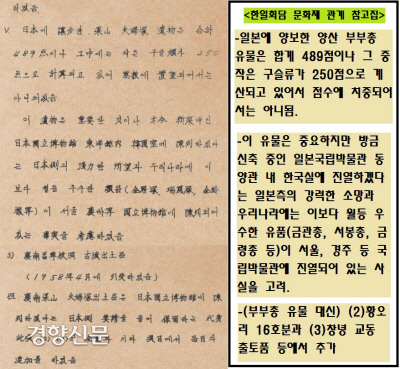 하였음
V. 日本에 讓步한 梁山 夫婦塚 遺物은 合計
489点이나 그中에는 작은 구슬類가 250
点으로 計算되고 있어 点數에 置重되어서는
아니되겠음
이 遺物은 重要한 것이나 方今 新築中인
日本國立博物館 東洋館內 韓國室에 陳列하겠다
는 日本側의 强力한 所望과 우리나라에 이
보다 월등 우수한 遺品(金冠塚, 瑞鳳塚, 金鈴
塚等)이 서울 慶州等 國立博物館에 陳列되어
있는 事實을 考慮하였음
3) 慶南昌寧校洞 古墳出土品
(1958年4月에 引受하였음)
但 慶南梁山 夫婦塚出土品은 日本國立博物館에 陳
列하겠다는 日本側 要請을 들어 保留하는 代身
品目의
追加를 하였음
경향신문
<한일회담 문화재 관계 참고집>
-일본에 양보한 양산 부부총
유물은 합계 489점이나 그 중
작은 구슬류가 250점으로 계
산되고 있어서 점수에 치중되어
서는 아니됨.
-이 유물은 중요하지만 방금
신축 중인 일본국립박물관 동
양관 내 한국실에 진열하겠다
는 일본측의 강력한 소망과
우리나라에는 이보다 월등 우
수한 유품(금관총, 서봉총, 금
령총 등)이 서울, 경주 등 국
립박물관에 진열되어 있는 사
실을 고려.
-(부부총 유물 대신) (2)황오
리 16호분과 (3)창녕 교동
출토품 등에서 추가